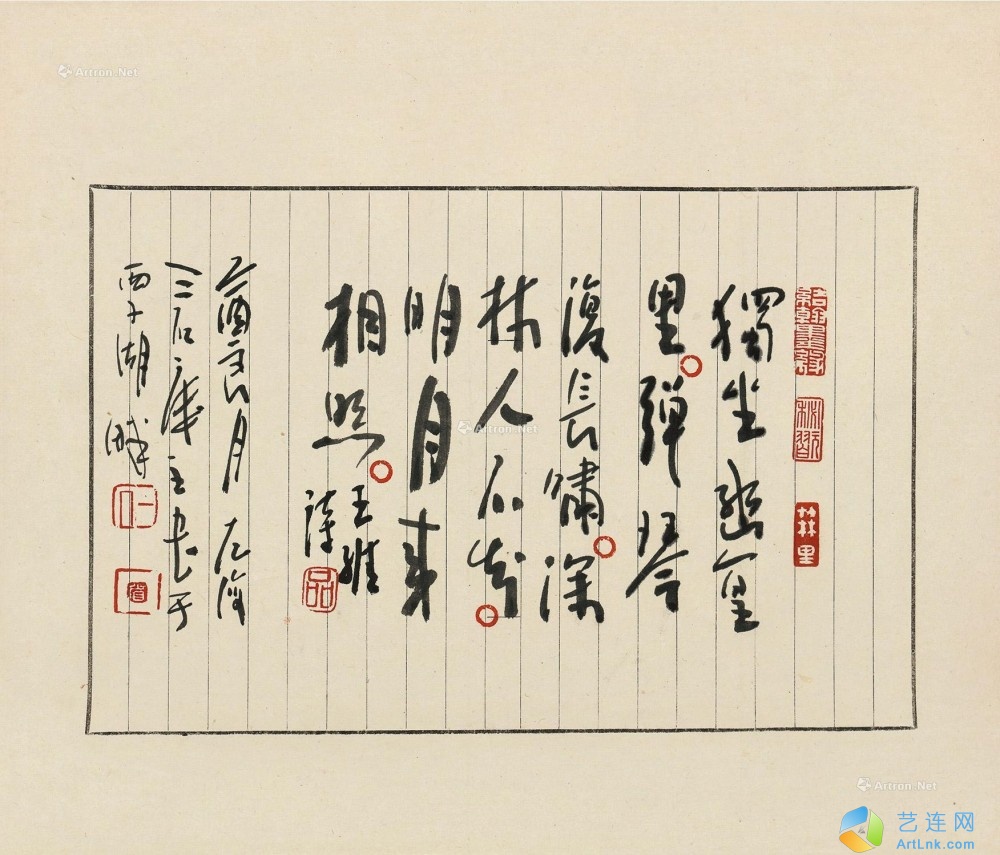 獨坐幽篁
里彈琴
復長嘯深
林人不知
明月来
相照 王維
詩
乙酉良月
三石庵主書于
西子湖畔
Artron.Net
Artron.Net
Artron.Net
艺连网
ArtLnk.com